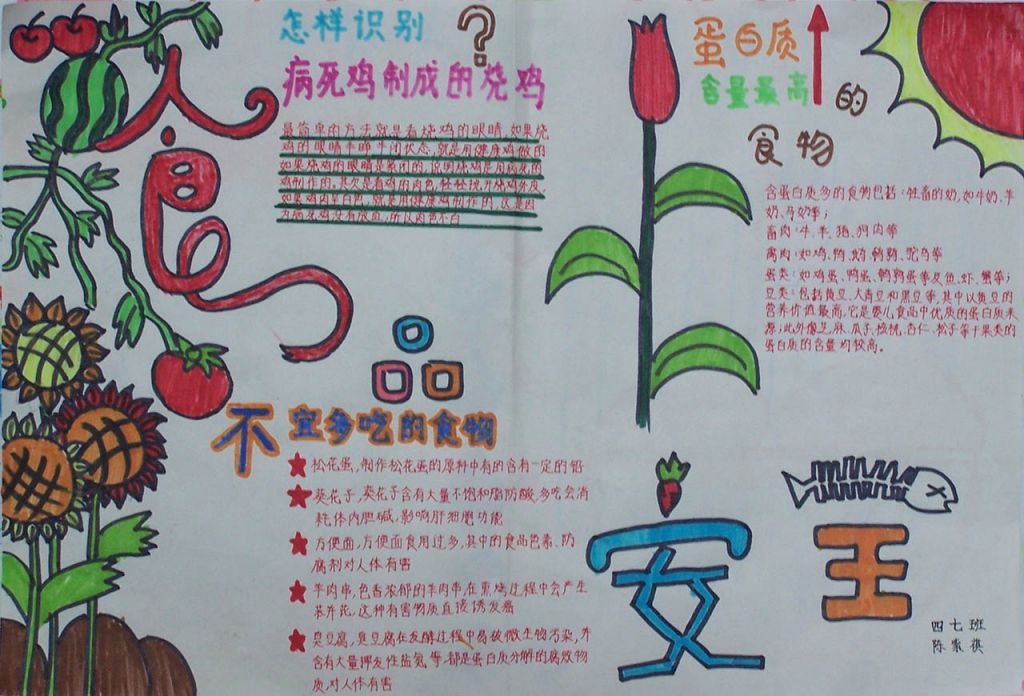 食品安全
怎样识别?
病死鸡制成的烧鸡
最简单的方法就是看烧鸡的眼睛,如果烧
鸡的眼睛半睁半闭状态,就是用健康鸡做的
如果烧鸡的眼睛是紧闭的,说明烧鸡是用病死的
鸡制作的。其次是看鸡的肉色,轻轻挑开烧鸡外皮,
如果鸡肉呈白色,就是用健康鸡制作的,这是因
为病死鸡没有放血,所以肉色不白
蛋白质
含量最高的
食物
含蛋白质多的食物包括:牲畜的奶,如牛奶、羊
奶、马奶等;
畜肉:牛、羊、猪、狗肉等
禽肉:如鸡、鸭、鹅、鹌鹑、鸵鸟等
蛋类:如鸡蛋、鸭蛋、鹌鹑蛋等及鱼、虾、蟹等;
豆类:包括黄豆、大青豆和黑豆等,其中以黄豆的
营养价值最高,它是婴儿食品中优质的蛋白质来
源;此外像芝麻、瓜子、核桃、杏仁、松子等干果类的
蛋白质的含量均较高。
不宜多吃的食物
松花蛋,制作松花蛋的原料中有的含有一定的铅
葵花子,葵花子含有大量不饱和脂肪酸,多吃会消
耗体内胆碱,影响肝细胞功能
方便面,方便面食用过多,其中的食品色素、防
腐剂对人体有害
羊肉串,色香浓郁的羊肉串,在熏烧过程中会产生
苯并芘,这种有害物质直接诱发癌
臭豆腐,臭豆腐在发酵过程中易被微生物污染,并
含有大量挥发性盐氨等,都是蛋白质分解的腐败物
质,对人体有害
四七班
陈家祺